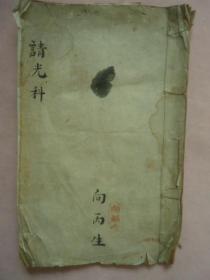 請光科
向丙生